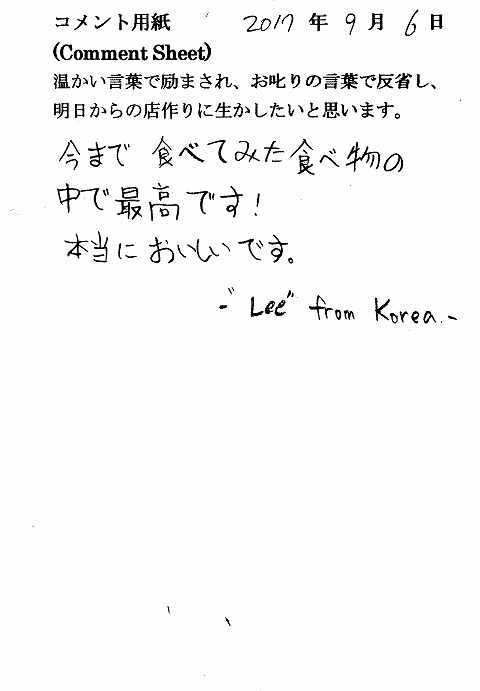 コメント用紙 2017年9月6日
(Comment Sheet)
温かい言葉で励まされ、お叱りの言葉で反省し、
明日からの店作りに生かしたいと思います。
今まで 食べてみた食べ物の
中で最高です!
本当に おいしいです。
-"Lee" from Korea.-